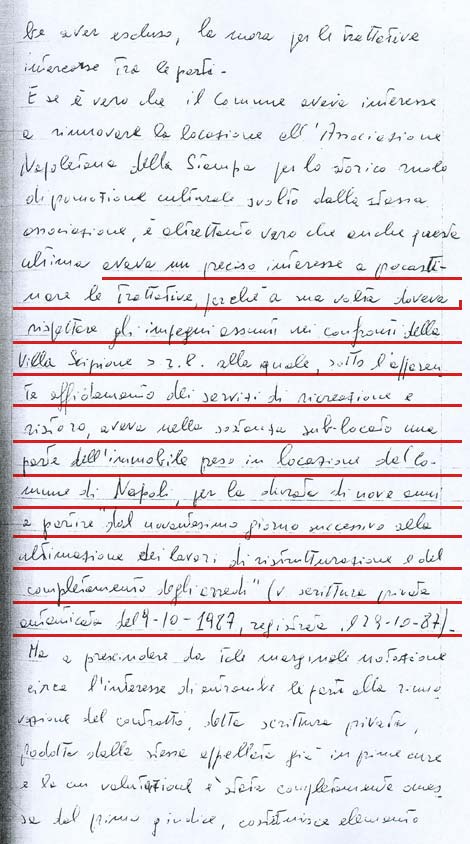 be aver escluso, la mora per le trattative
intercorse tra le parti.
E se è vero che il Comune aveva interesse
a rinnovare la locazione all'Associazione
Napoletana della Stampa per lo storico ruolo
di promozione culturale svolto dalla stessa
associazione, è altrettanto vero che anche questa
ultima aveva un preciso interesse a procrasti-
nare le trattative, perché a sua volta doveva
rispettare gli impegni assunti nei confronti della
Villa Scipione s.r.l. alla quale, sotto l'apparen
te affidamento dei servizi di ricreazione e
ristoro, aveva nella sostanza sub-locato una
parte dell'immobile preso in locazione dal Co-
mune di Napoli, per la durata di nove anni
a partire "dal novantesimo giorno successivo alla
ultimazione dei lavori di ristrutturazione e del
completamento degli arredi" (v scrittura privata
autenticata del 9-10-1987, registrata il 29-10-87).
Ma a prescindere da tale marginale notazione
circa l'interesse di entrambe le parti alla rinno
vazione del contratto, detta scrittura privata,
prodotta dalla stessa appellata già in prime cure
e la cui valutazione è stata completamente omes
sa dal primo giudice, costituisce elemento